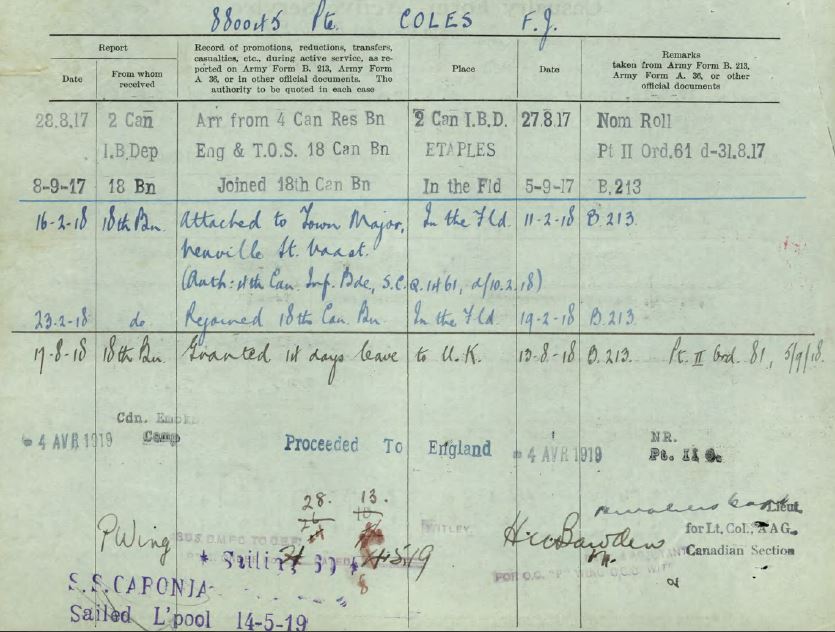 880045 Pte. COLES F.J.
Report
Record of promotions, reductions, transfers, casualties, etc., during active service, as reported on Army Form B. 213, Army Form A. 36, or in other official documents. The authority to be quoted in each case
Place
Date
Remarks taken from Army Form B. 213, Army Form A. 36, or other official documents
Date
From whom received
28.8.17 2 Can Arr from 4 Can Res Bn 2 Can I.B.D. 27.8.17 Nom Roll
I.B.Dep Eng & T.O.S. 18 Can Bn ETAPLES Pt II Ord.61 d-31.8.17
8-9-17 18 Bn Joined 18th Can Bn In the Fld 5-9-17 B.213
16-2-18 18th Bn. Attached to Town Major, In the Fld. 11-2-18 B.213.
Neuville St. Vaast.
(Auth: 4th Can. Inf. Bde, S.C.Q. 1461, d/10.2.18)
23-2-18 do Rejoined 18th Can. Bn In the Fld. 19-2-18 B.213.
17-8-18 18th Bn. Granted 14 days leave to U.K. 13-8-18 B.213. Pt. II Ord. 81, 5/9/18.
Cdn.
Camp
4 AVR 1919 Proceeded To England 4 AVR 1919 NR.
Pt. II O.
28. 13.
P Wing
WITLEY.
H W Bowden
Lieut
for Lt. Col., AAG.
Canadian Section
* Sailing
FOR O.C. "P" WING C.D.C. WITLEY
S.S. CARONIA
Sailed L'pool 14-5-19